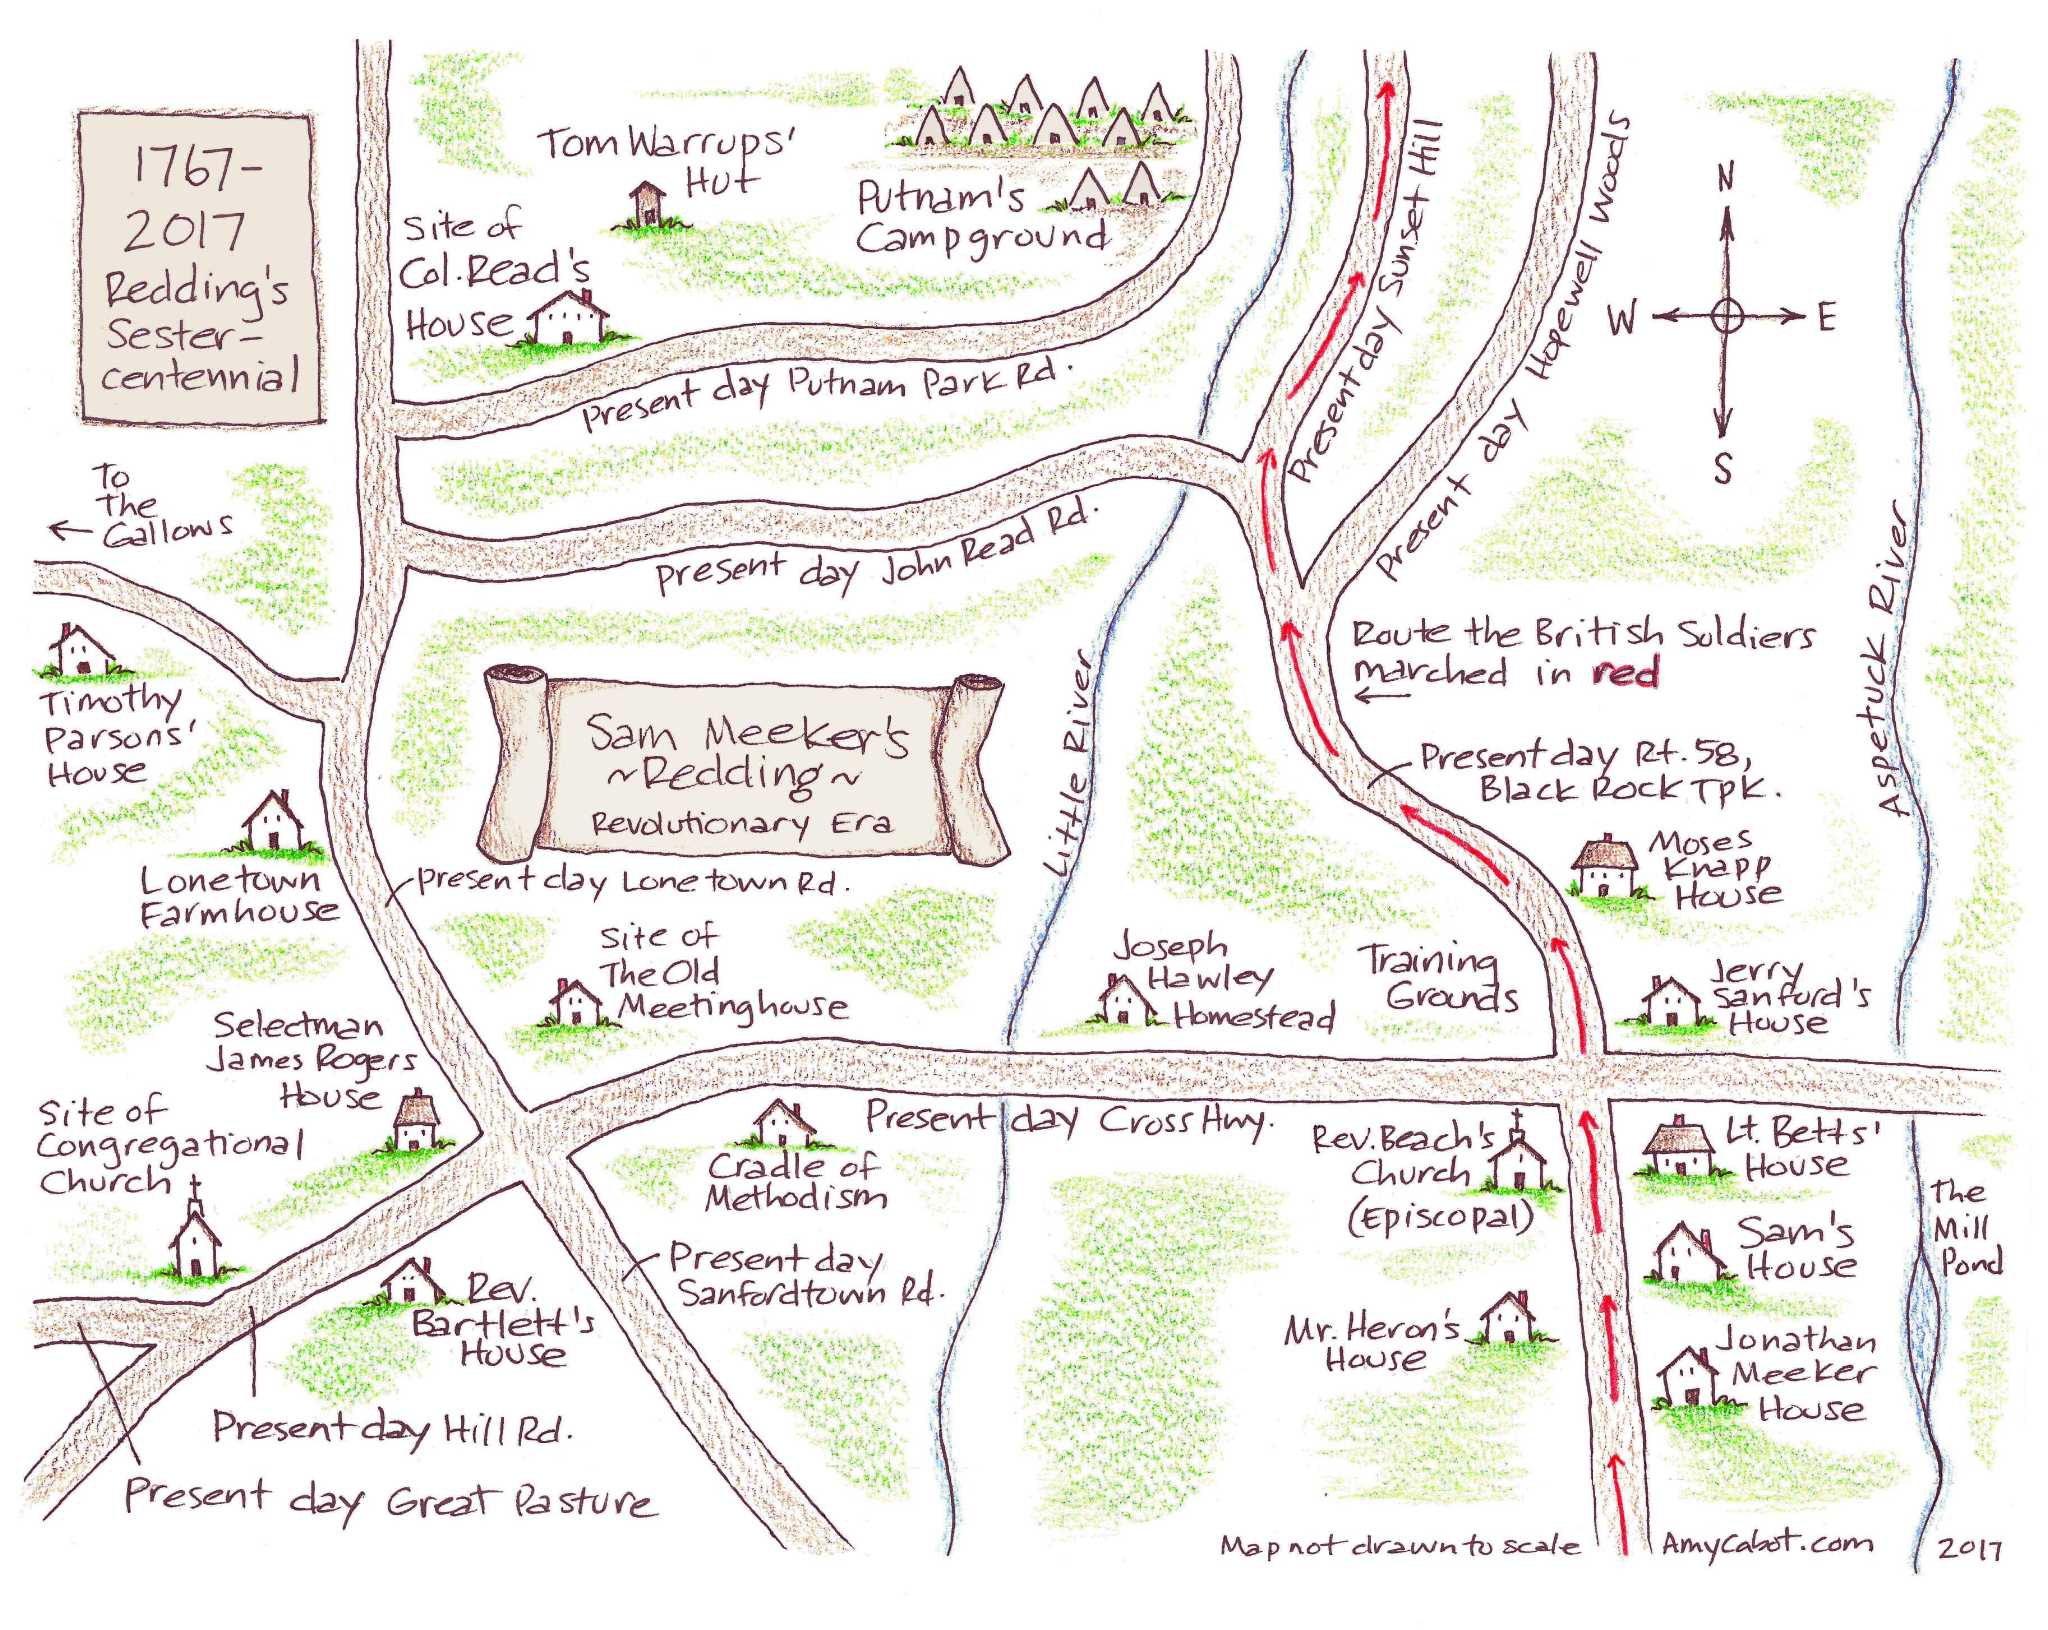 1767-
2017
Redding's
Sester-
centennial
Tom Warrups'
Hut
Putnam's
Campground
Site of
Col. Read's
House
Present day Putnam Park Rd.
Present day Sunset Hill
Present day Hopewell Woods
N
W
E
S
To
The
Gallows
Present day John Read Rd.
Timothy
Parsons'
House
Sam Meeker's
~Redding~
Revolutionary Era
Little River
Route the British Soldiers
marched in red
Aspetuck River
Present day Rt. 58,
Black Rock Tpk.
Moses
Knapp
House
Lonetown
Farmhouse
Present day Lonetown Rd.
Site of
The Old
Meetinghouse
Joseph
Hawley
Homestead
Training
Grounds
Jerry
Sanford's
House
Selectman
James Rogers
House
Site of
Congregational
Church
Cradle of
Methodism
Present day Cross Hwy.
Rev. Beach's
Church
(Episcopal)
Lt. Betts'
House
The
Mill
Pond
Sam's
House
Present day
Sanfordtown Rd.
Rev.
Bartlett's
House
Mr. Heron's
House
Jonathan
Meeker
House
Present day Hill Rd.
Present day Great Pasture
Map not drawn to scale
AmyCabot.com
2017